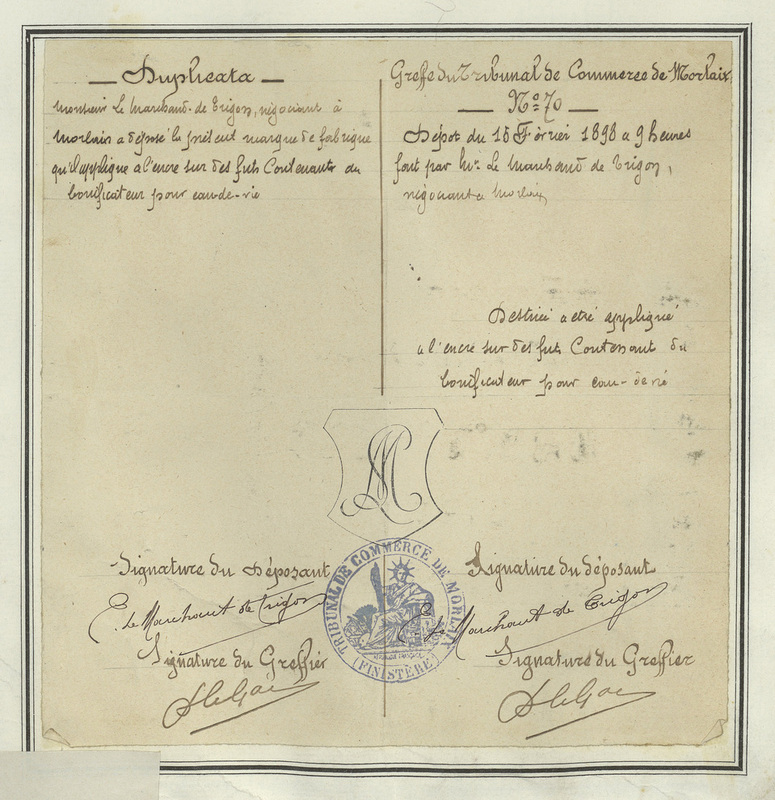 Duplicata
Monsieur Le Marchand de Trigon, négociant à
Morlaix a déposé la présent marque de fabrique
qu'il applique a l'encre sur des futs Contenants du
bonificateur pour eau-de-vie
Greffe du Tribunal de Commerce de Morlaix
No 70
Dépot du 15 Février 1898 a 9 heures
fait par Mr. Le Marchand de Trigon,
négociant a Morlaix
Destiné a etré appliqué
a l'encre sur des futs Contenant du
bonificateur pour eau-de vie
LM
Signature du Déposant
E. Le Marchant de Trigon
Signature du Greffier
TRIBUNAL DE COMMERCE DE MORLAIX
(FINISTÈRE)
Signature du déposant
E. Le Marchant de Trigon
Signature du Greffier